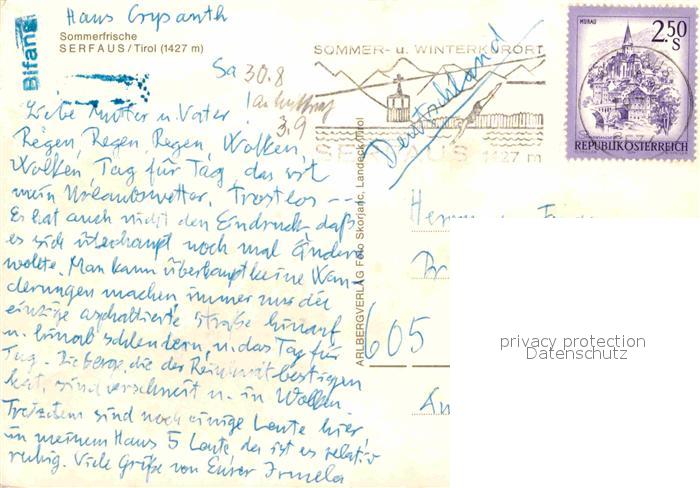 Haus Crysanth
Bifans
Sommerfrische
SERFAUS/Tirol (1427 m)
Sa 30.8
3.9
Liebe Mutter u. Vater!
Regen, Regen, Regen, Wolken,
Wolken, Tag für Tag, das ist
mein Urlaubswetter. Trostlos ---
Es hat auch nicht den Eindruck, daß
es sich überhaupt noch mal ändern
wollte. Man kann überhaupt keine Wan-
derungen machen, immer nur die
einzige asphaltierte Straße hinauf
u. hinab schlendern, u. das Tag für
Tag. Die Berge, die der Reinhard bestiegen
hat, sind verschneit u. in Wolken.
Trotzdem sind noch einige Leute hier,
in meinem Haus 5 Leute, da ist es relativ
ruhig. Viele Grüße von Eurer Irmela
ARLBERGVERLAG Foto Skorjanc, Landeck/Tirol
SOMMER- u. WINTERKURORT
SERFAUS 1427 m
Deutschland
MURAU
2.50
S
REPUBLIK ÖSTERREICH
605
privacy protection
Datenschutz